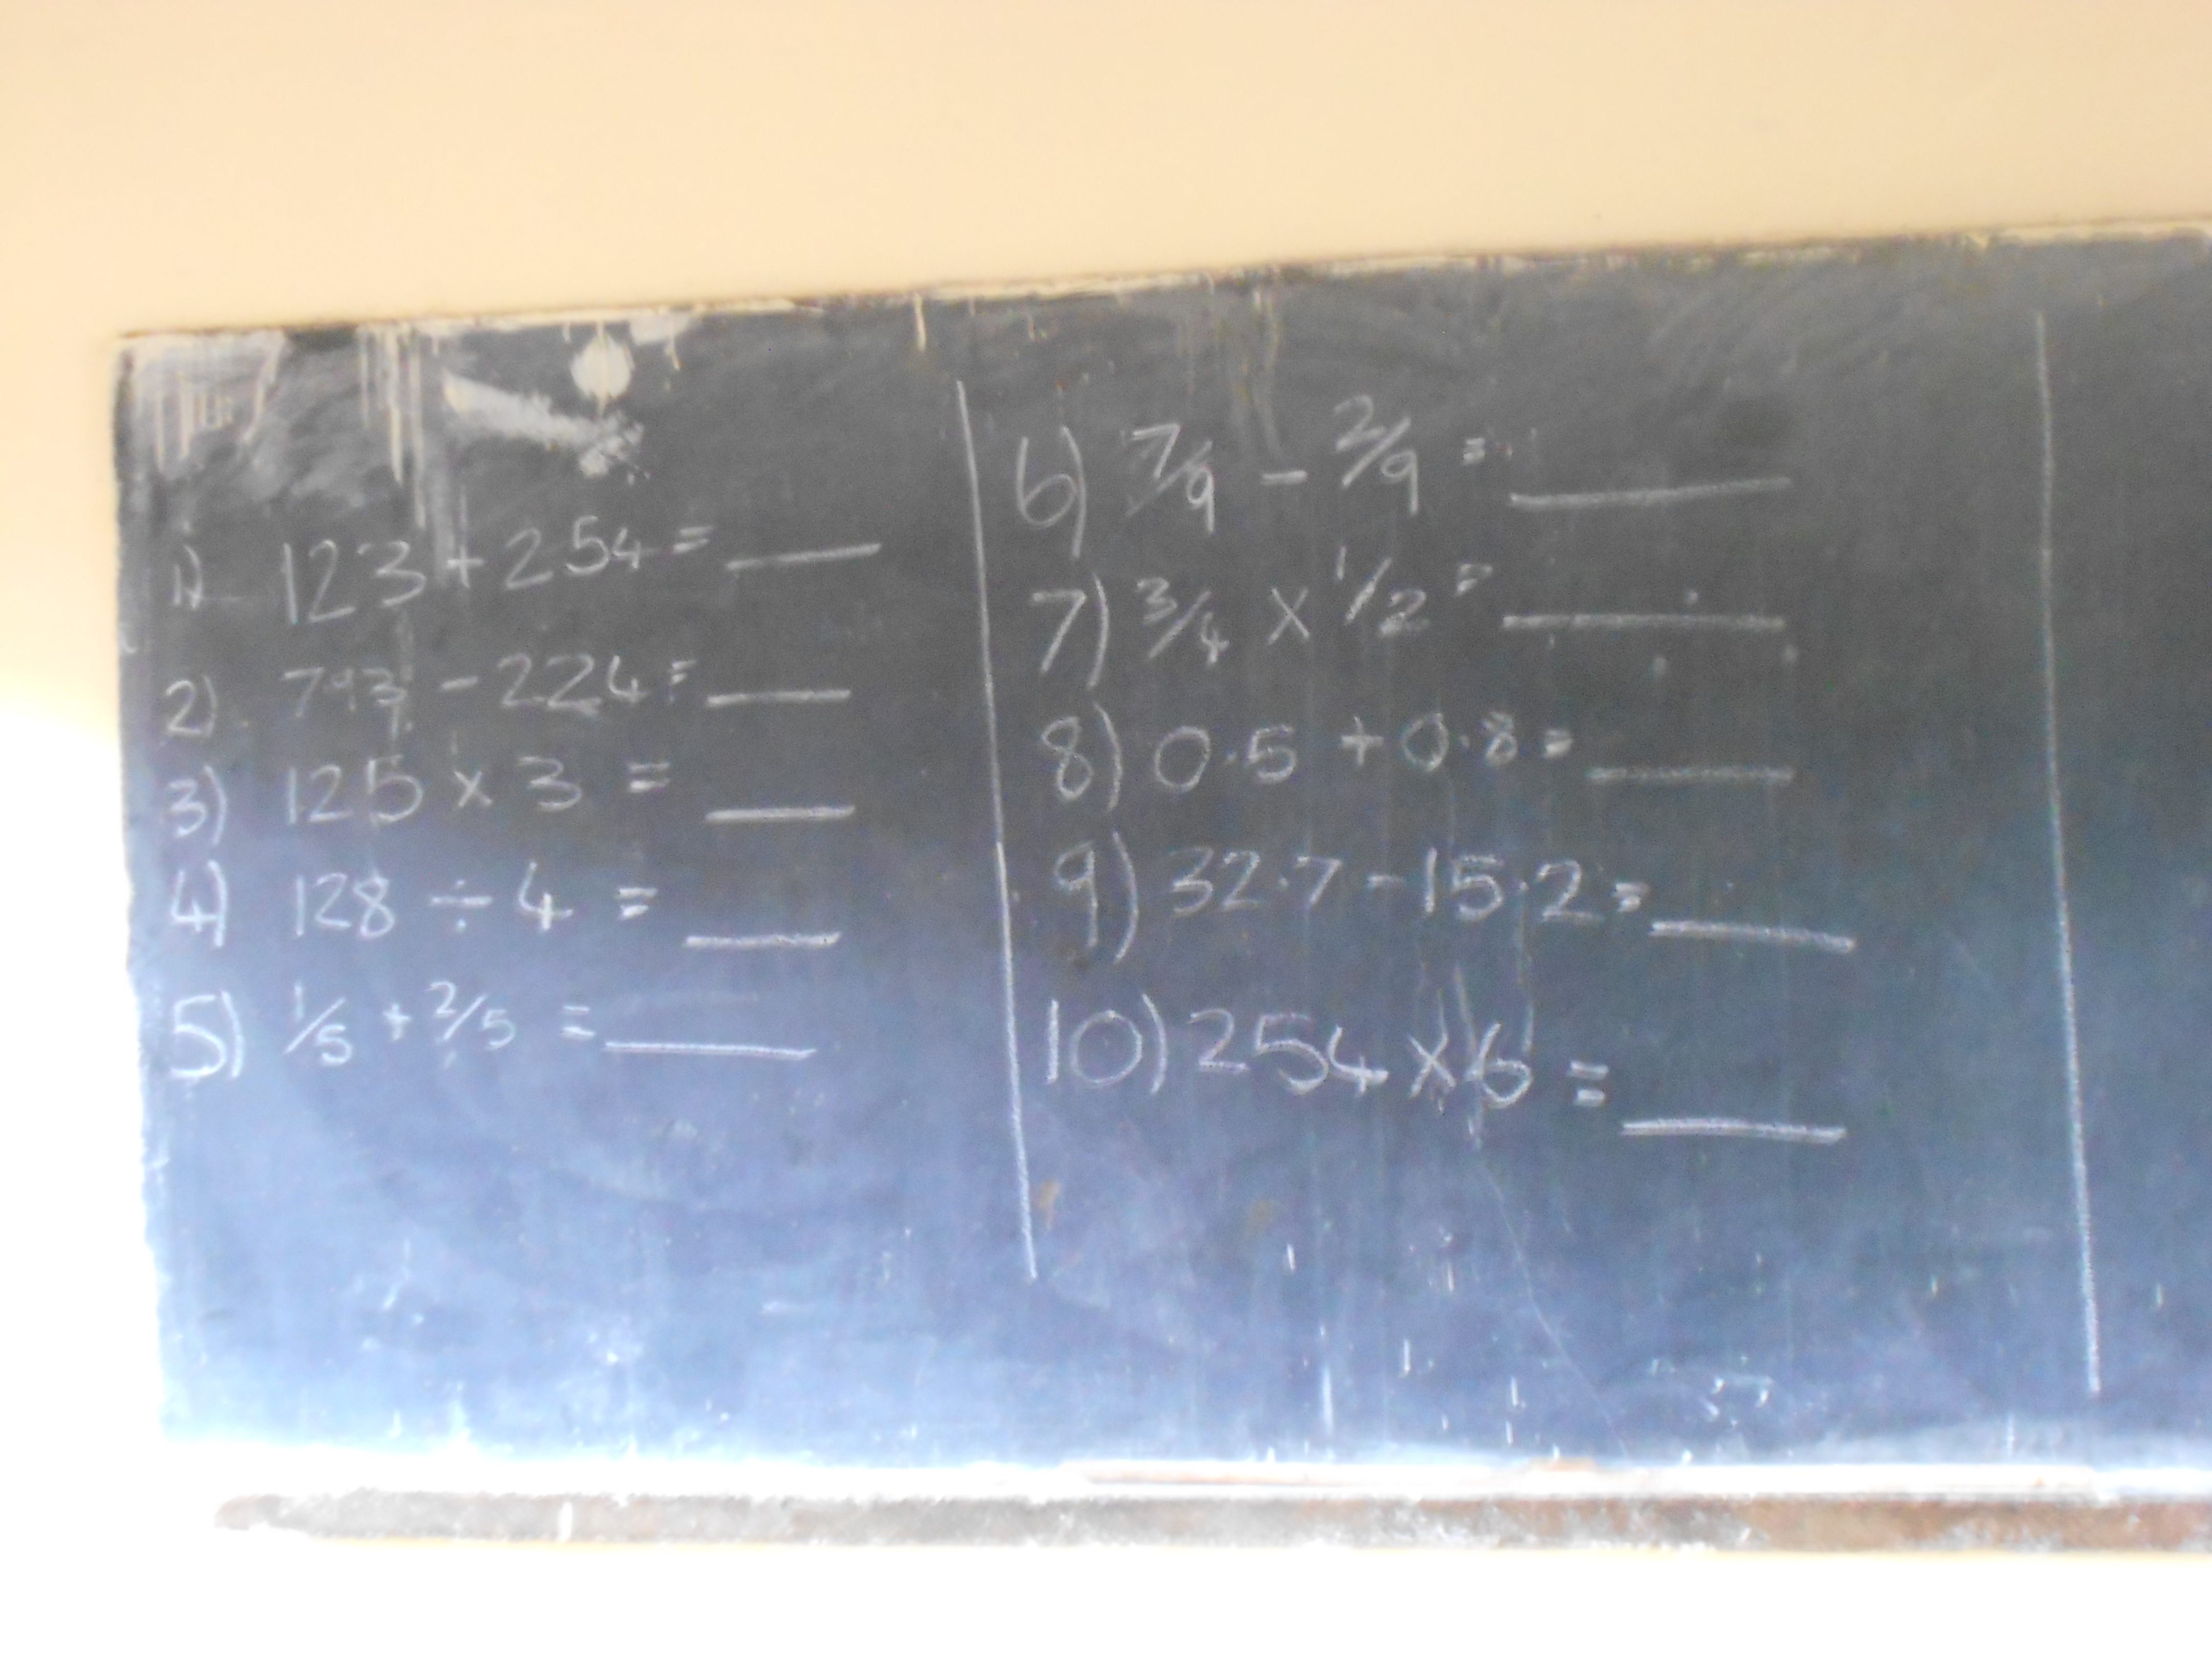 1) 123 + 254 = ___
2) 793 - 224 = ___
3) 125 x 3 = ___
4) 128 ÷ 4 = ___
5) 1/5 + 2/5 = ___
6) 7/9 - 2/9 = ___
7) 3/4 x 1/2 = ___
8) 0.5 + 0.8 = ___
9) 32.7 - 15.2 = ___
10) 254 x 6 = ___